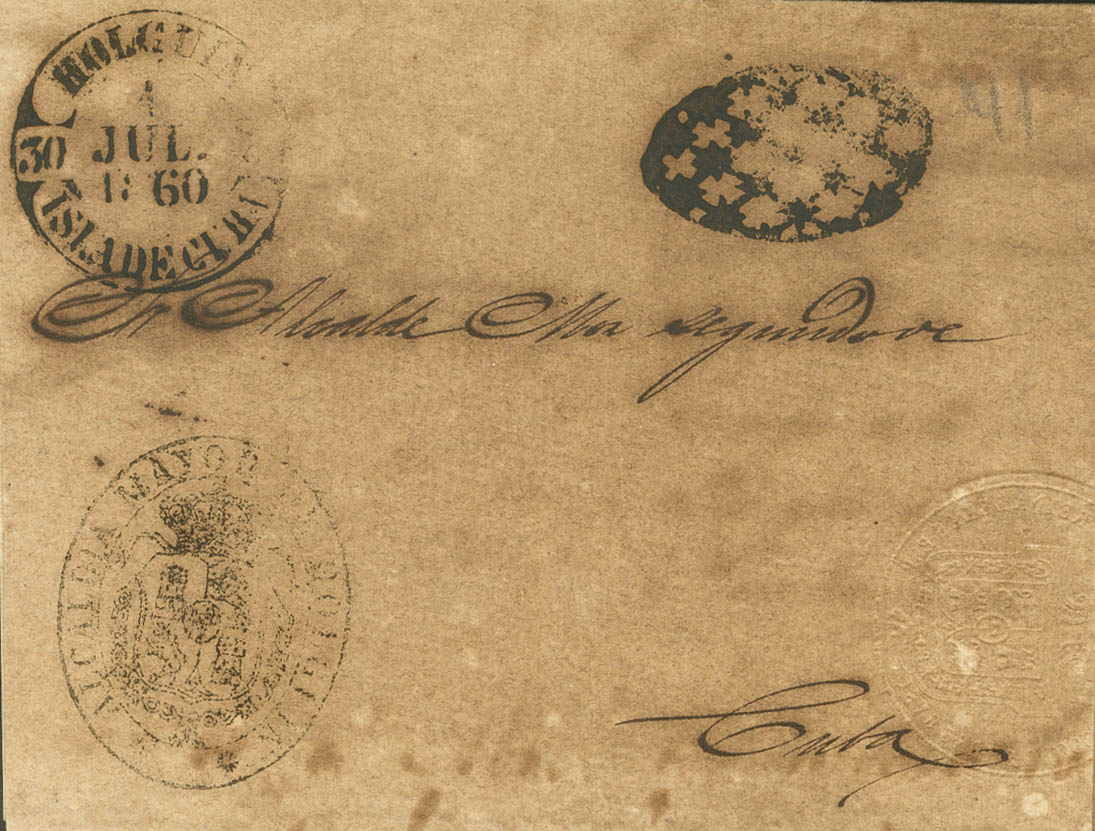 HOLGUIN
1
JUL.
1860
30
ISLA DE CUBA
Sr Alcalde Mor segundo de
ALCALDIA MAYOR DE HOLGUIN
Cuba